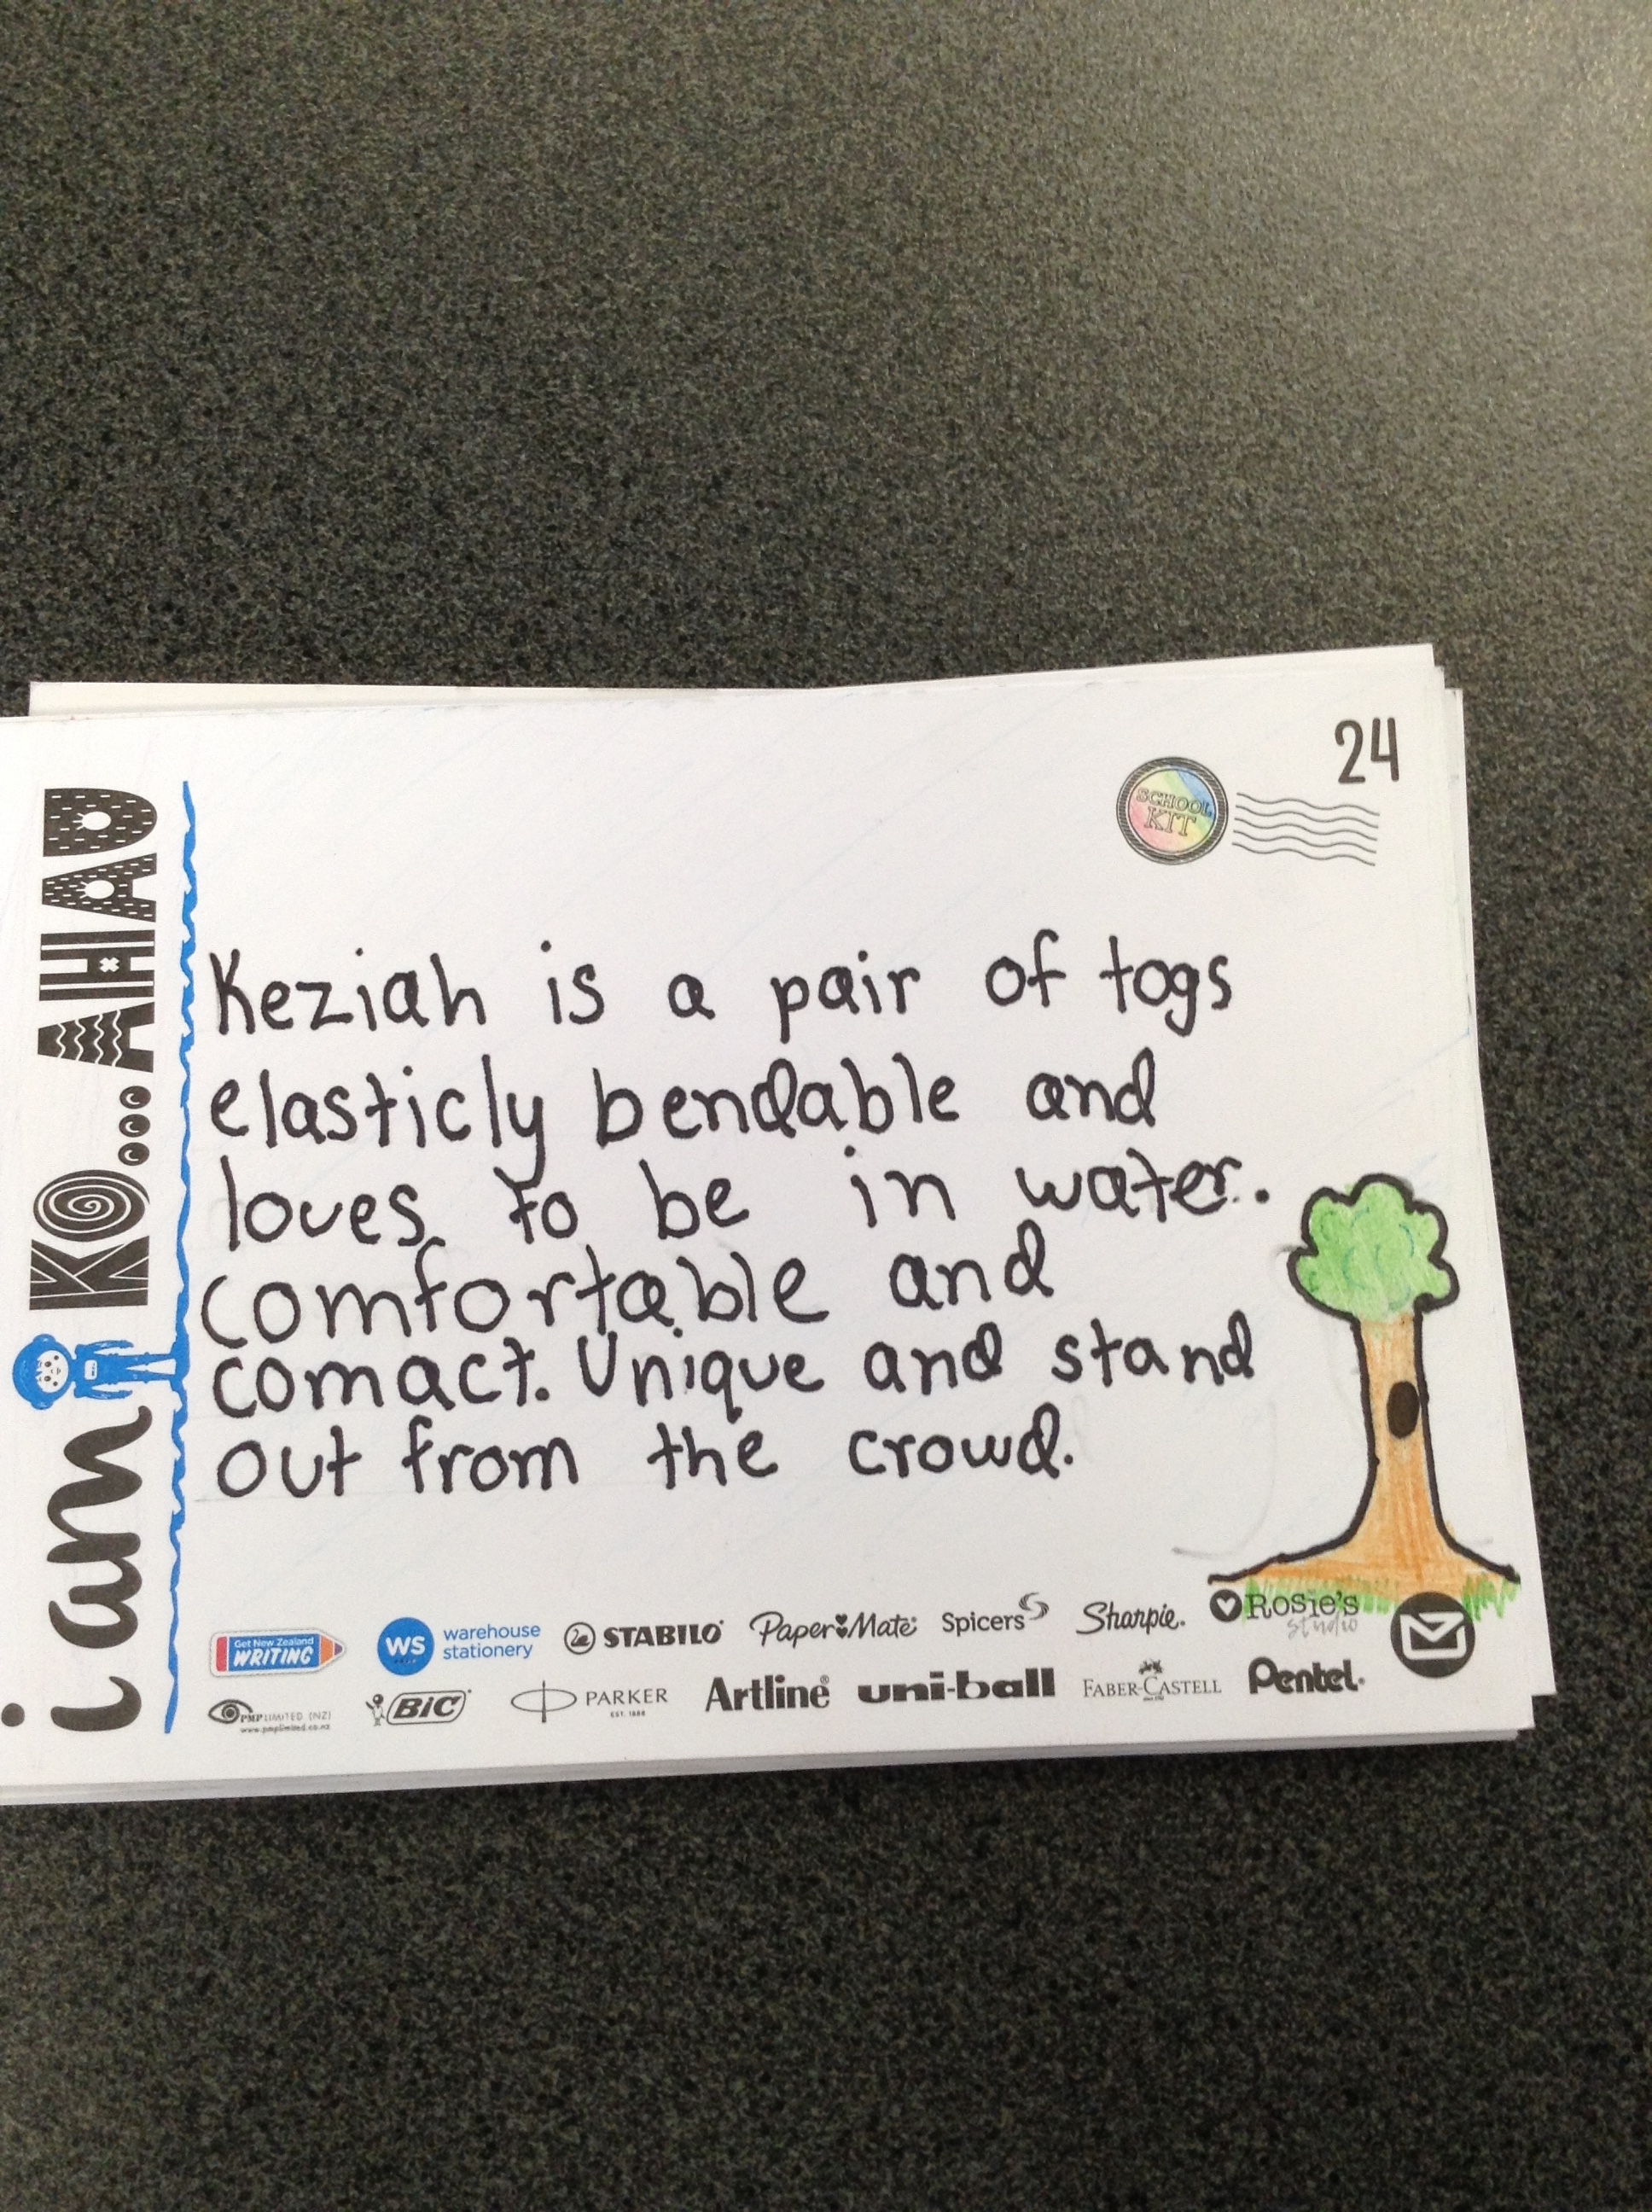 24
SCHOOL
KIT
i am
KO...AHAU
Keziah is a pair of togs
elasticly bendable and
loves to be in water.
comfortable and
comact. Unique and stand
out from the crowd.
Get New Zealand
WRITING
WS
warehouse
stationery
STABILO
Paper Mate
Spicers
Sharpie.
Rosie's
Studio
PMP LIMITED (NZ)
www.pmplimited.co.nz
BIC
PARKER
EST. 1888
Artline
uni-ball
FABER-CASTELL
Pentel